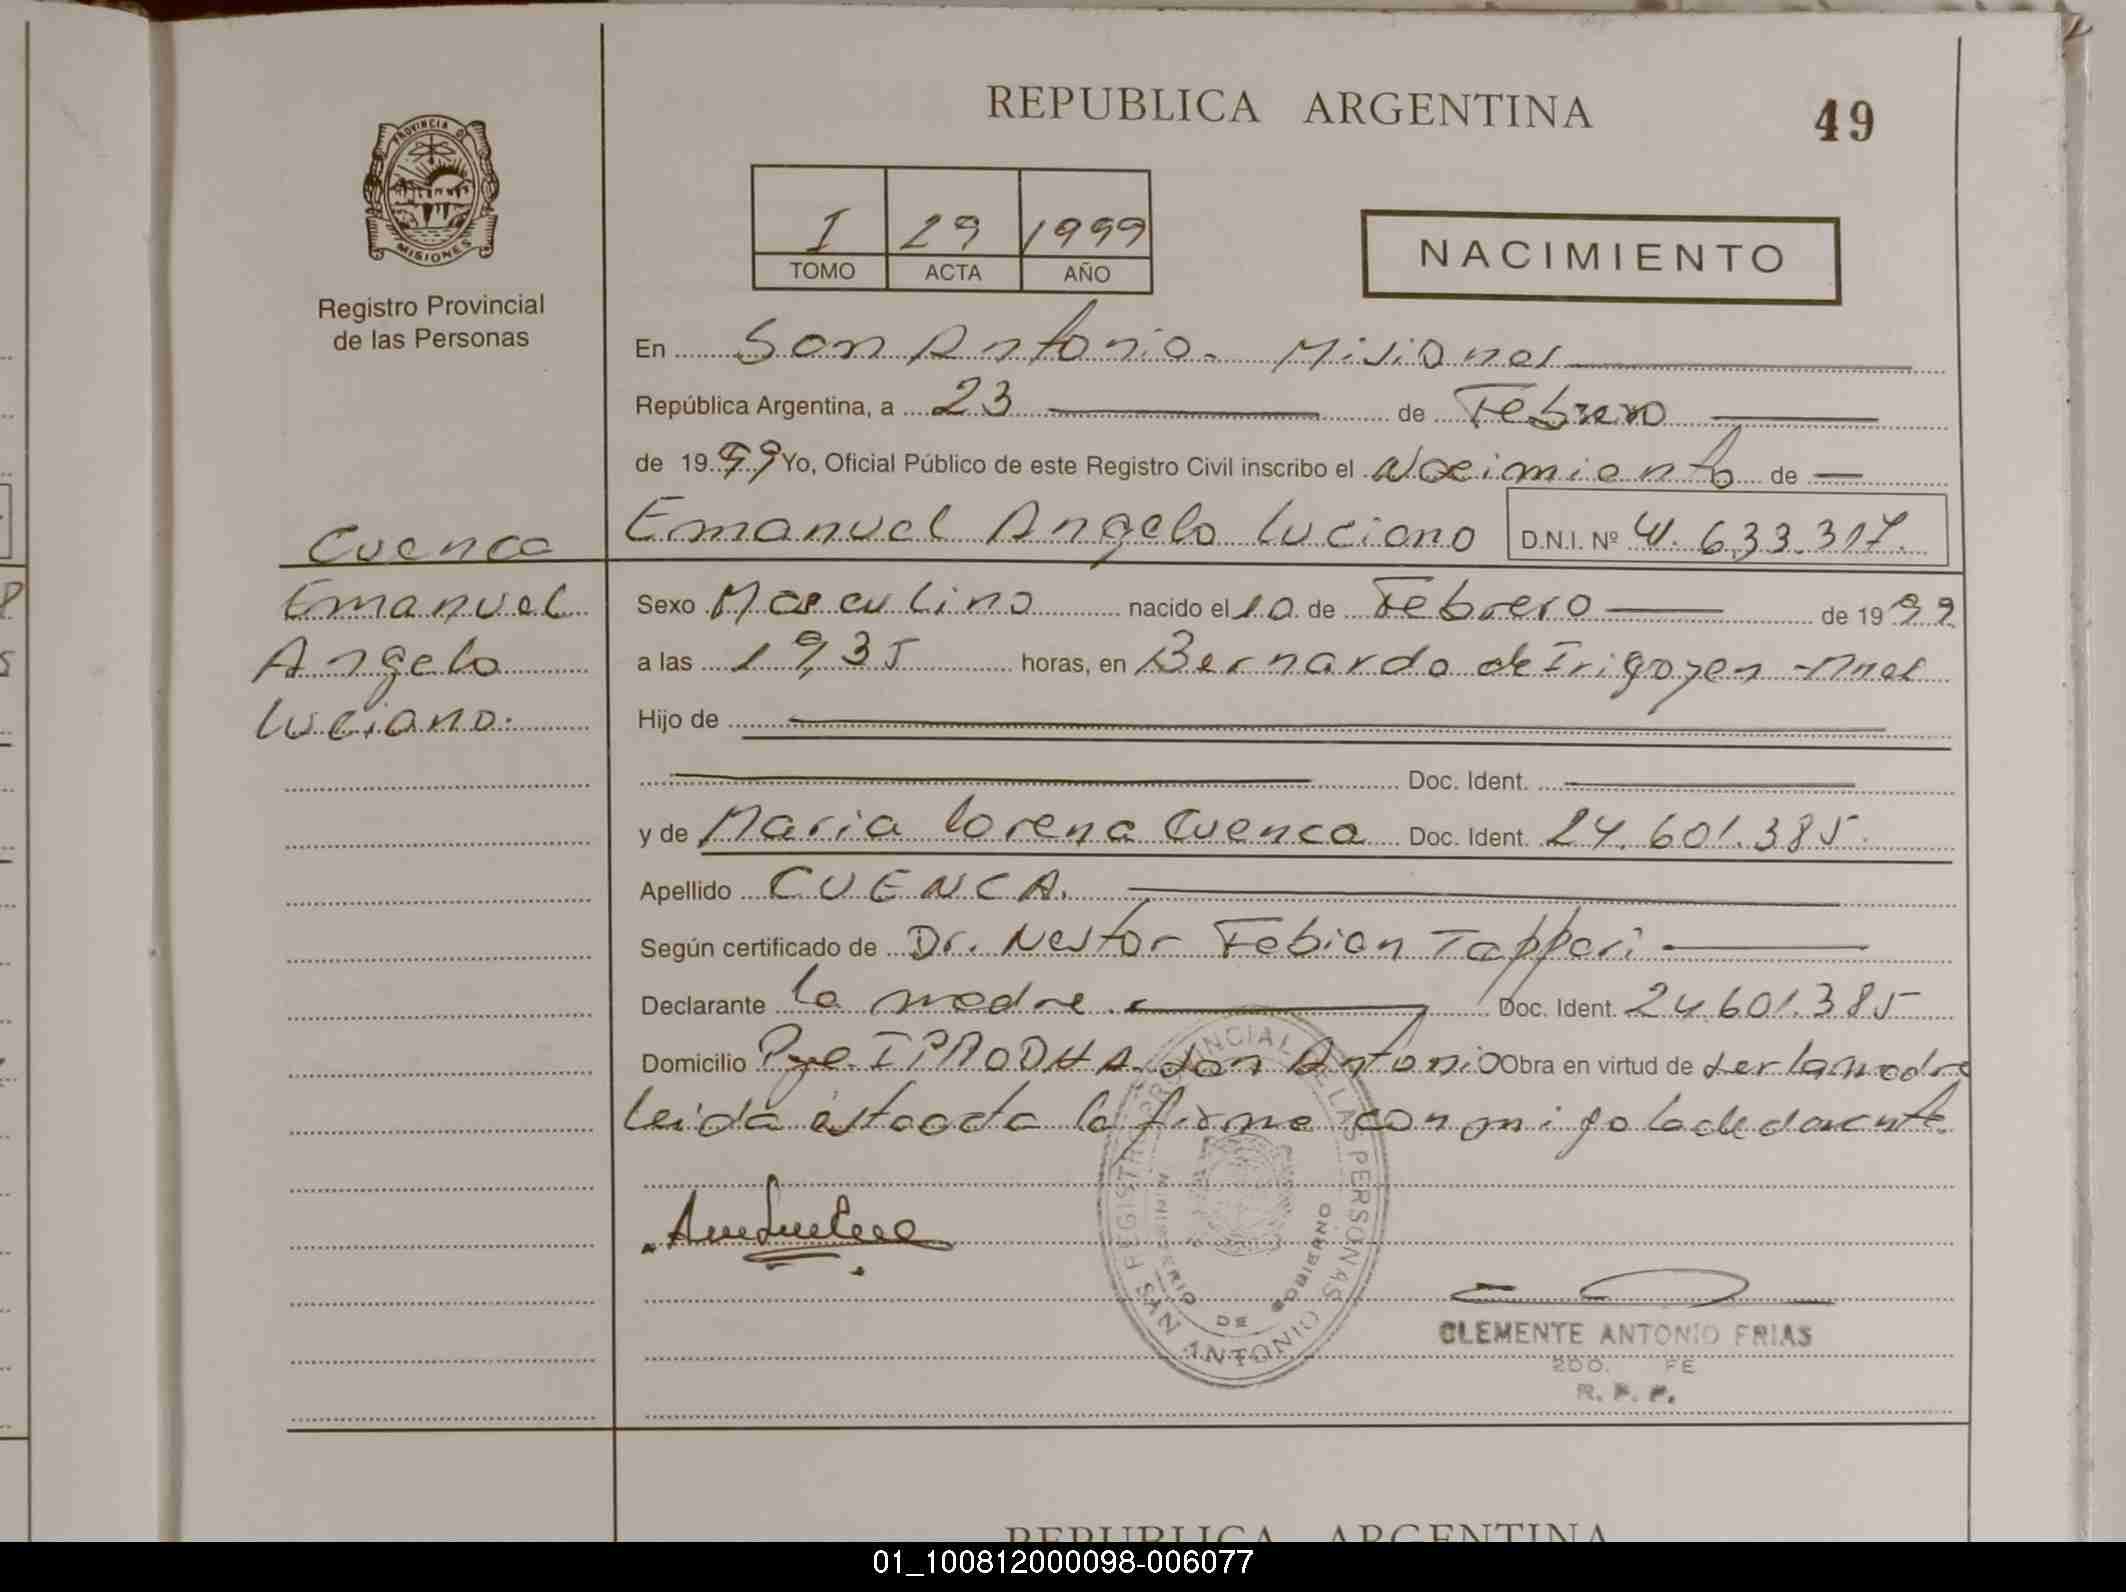 REPUBLICA ARGENTINA
49
PROVINCIA DE
MISIONES
Registro Provincial
de las Personas
I 29 1999
TOMO ACTA AÑO
NACIMIENTO
En San Antonio. Misiones
República Argentina, a 23 de Febrero
de 1999 Yo, Oficial Público de este Registro Civil inscribo el nacimiento de
Cuenca
Emanuel Angelo Luciano D.N.I. Nº 41.633.317.
Emanuel
Angelo
Luciano.
Sexo Masculino nacido el 10 de Febrero de 1999
a las 19,35 horas, en Bernardo de Irigoyen - Mnes
Hijo de
Doc. Ident.
y de Maria Lorena Cuenca Doc. Ident. 24.601.385.
Apellido CUENCA.
Según certificado de Dr. Nestor Fabian Tappari
Declarante la madre Doc. Ident. 24.601.385
Domicilio IPRODHA. San Antonio Obra en virtud de ser la madre
Leida esta acta la firma conmigo la declarante.
REGISTRO PROVINCIAL DE LAS PERSONAS
MINISTERIO DE GOBIERNO
SAN ANTONIO
CLEMENTE ANTONIO FRIAS
R. P. P.
REPUBLICA ARGENTINA
01_100812000098-006077